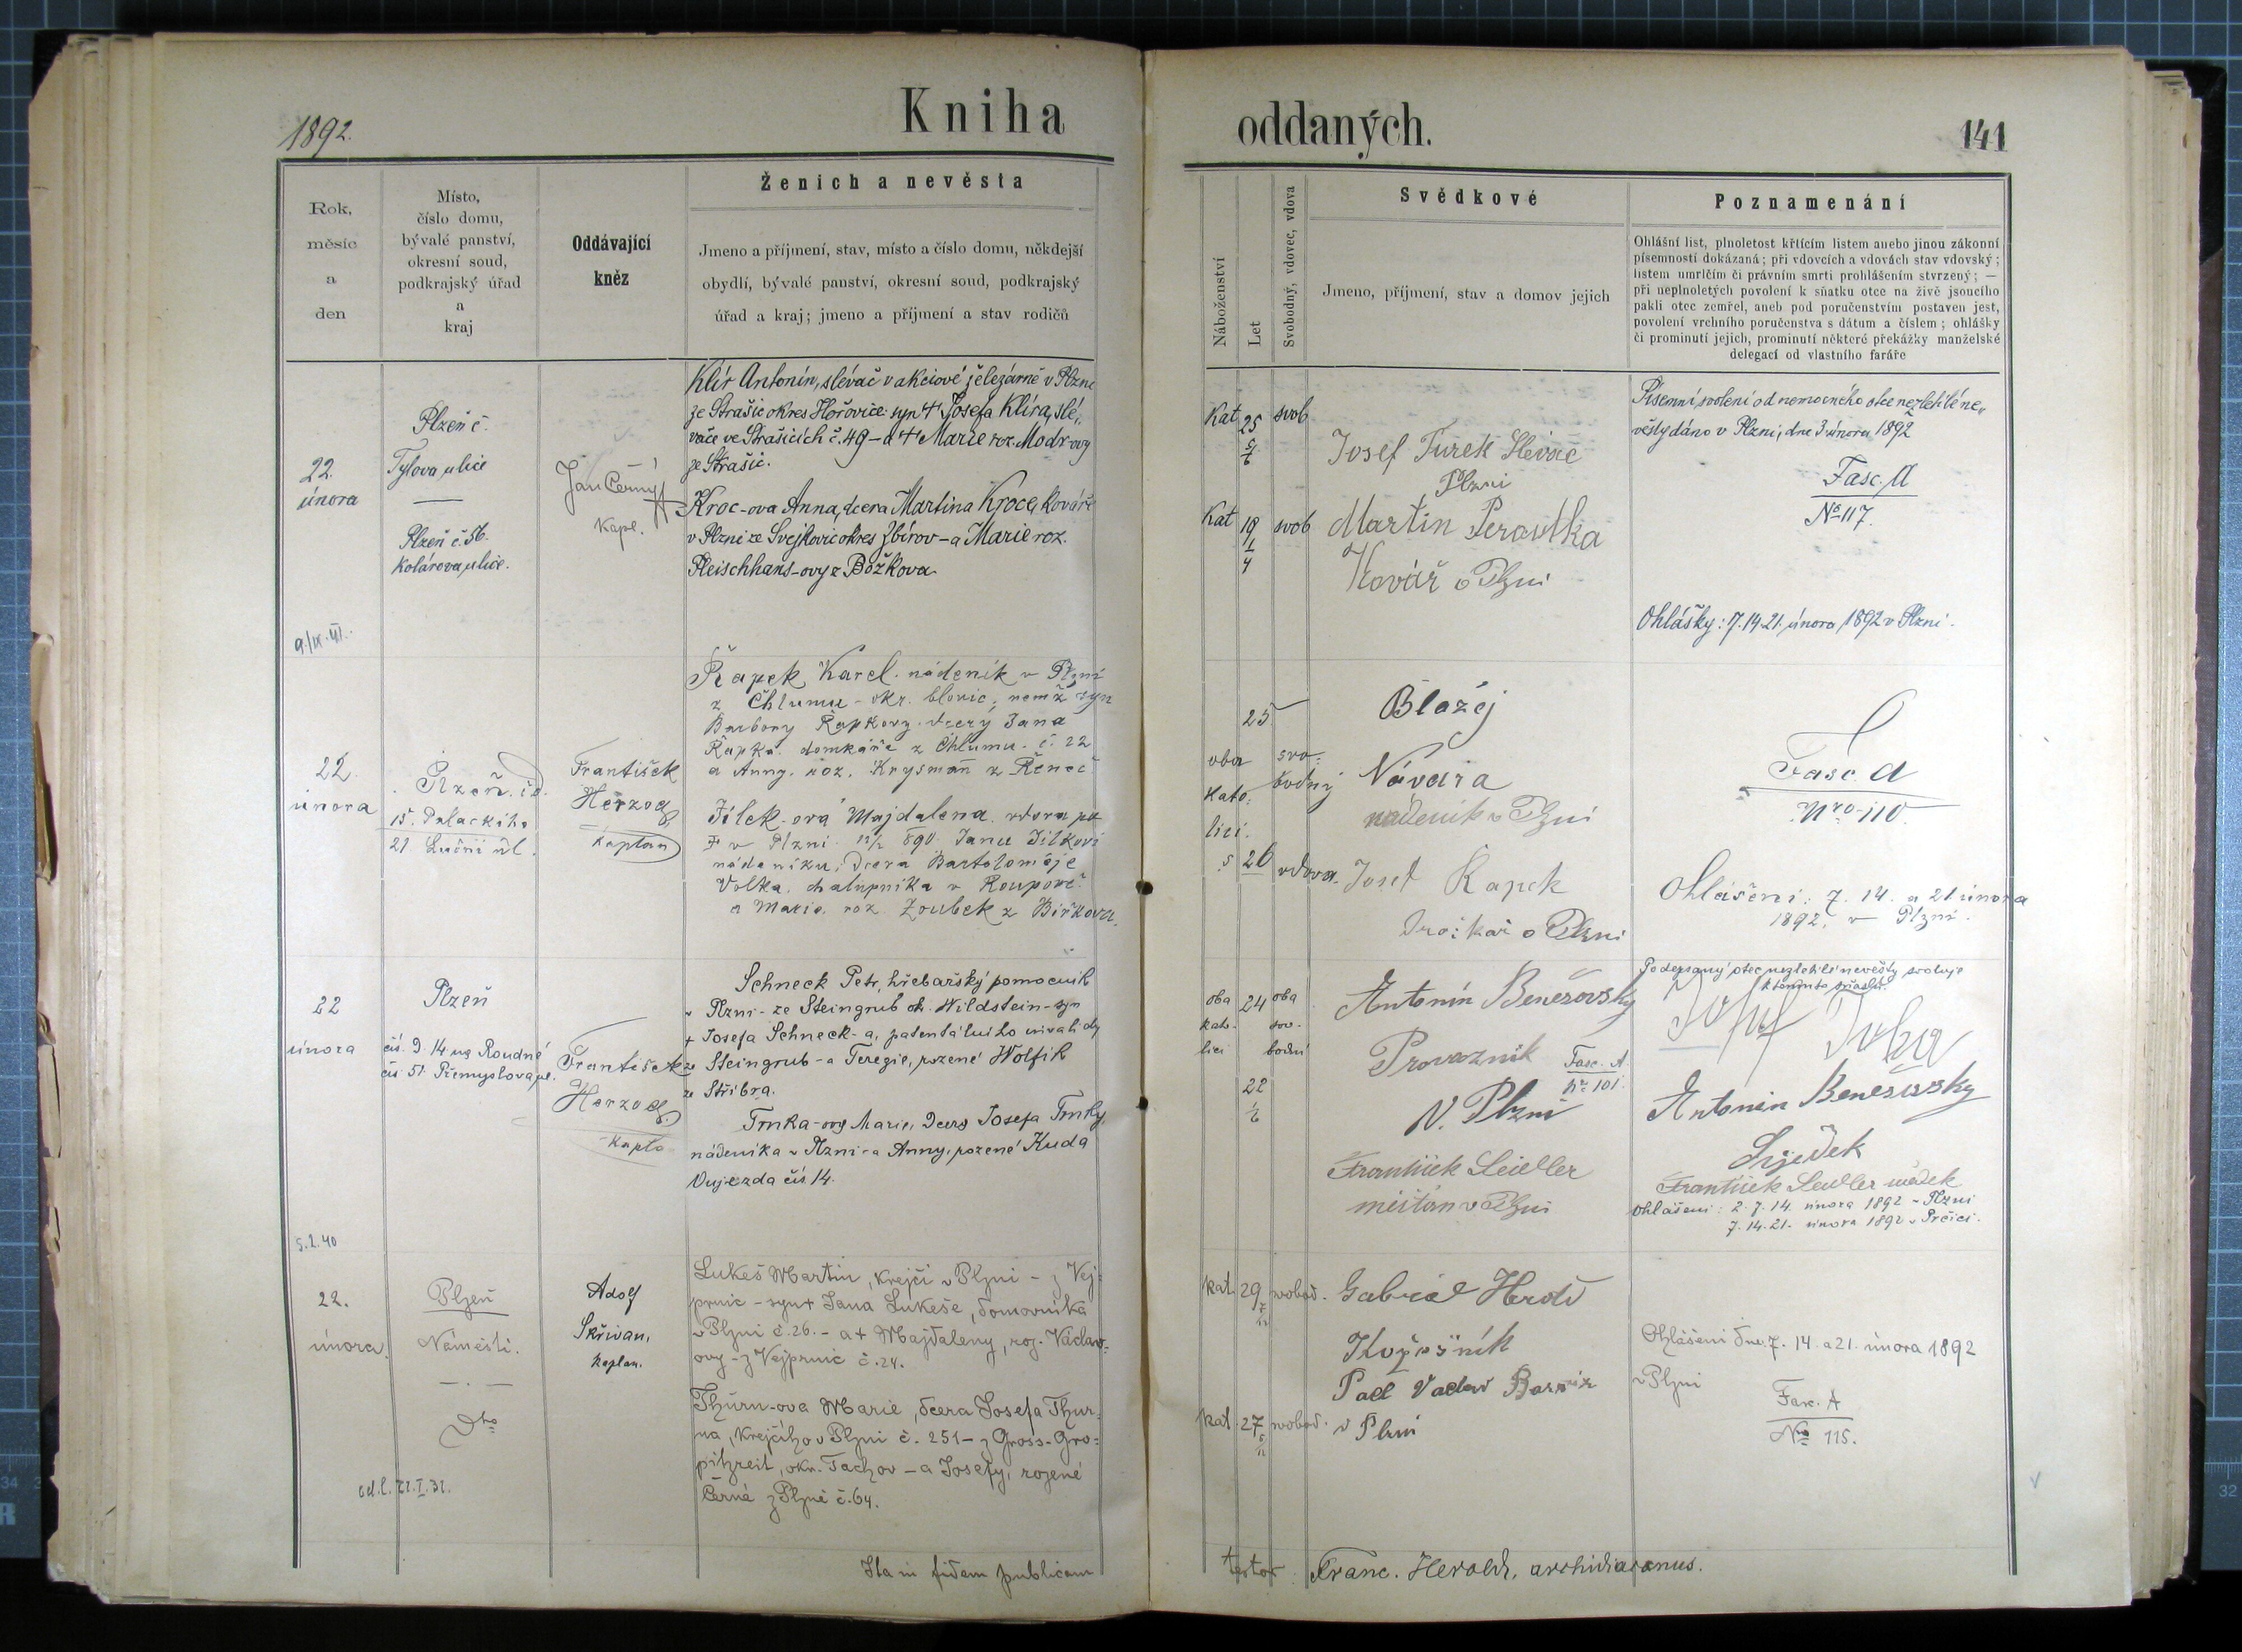 1892.
Kniha
oddaných.
141
Rok,
měsíc
a
den
Místo,
číslo domu,
bývalé panství,
okresní soud,
podkrajský úřad
a
kraj
Oddávající
kněz
Ženich a nevěsta
Jmeno a příjmení, stav, místo a číslo domu, někdejší
obydlí, bývalé panství, okresní soud, podkrajský
úřad a kraj; jmeno a příjmení a stav rodičů
Náboženství
Let
Svobodný, vdovec, vdova
Svědkové
Jmeno, příjmení, stav a domov jejich
Poznamenání
Ohlášní list, plnoletost křticím listem anebo jinou zákonní
písemností dokázaná; při vdovcích a vdovách stav vdovský;
listem umrlčím či právním smrti prohlášením stvrzený; —
při neplnoletých povolení k sňatku otce na živě jsoucího
pakli otec zemřel, aneb pod poručenstvím postaven jest,
povolení vrchního poručenstva s dátum a číslem; ohlášky
či prominutí jejich, prominutí některé překážky manželské
delegací od vlastního faráře
22.
února
Plzeň č.
Tylova ulice
Plzeň č. 56.
Kolárova ulice.
Jan Černý
kapl.
Klír Antonín, slévač v akciové železárně v Plzni
ze Strašic okres Hořovice syn † Josefa Klíra, slé-
vače ve Strašicích č. 49 – a † Marie roz. Modr-ovy
ze Strašic.
Kroc-ova Anna, dcera Martina Kroca, kováře
v Plzni ze Svejkovic okres Zbirov – a Marie roz.
Fleischhans-ovy z Božkova
Kat 25 svob
5
6
Kat 19 svob
1
4
Josef Turek Slévač
Plzni
Martin
Kovář v Plzni
Písemní svolení od nemocného otce nezletilé ne-
věsty dáno v Plzni, dne 3 února 1892
Fasc. A
No 117.
Ohlášky: 7. 14. 21. února 1892 v Plzni.
9./IX. 41.
22.
února
Plzeň. čd.
15. Palackiho
21. Luční ul.
František
Herzog
kaplan
Řapek Karel. nádeník v Plzni
z Chlumu – okr. blovic, nemž syn
Barbory Řapkovy. dcery Jana
Řapka. domkáře z Chlumu. č. 22
a Anny. roz. Krysman z Řeneč
Jílek-ová Majdalena. vdova po
† v Plzni 890. Janu Jílkovi
nádeníku, dcera Bartoloměje
Volka. chalupníka v Roupově.
a Marie. roz. Zoubek z Birkova.
25
oba svo-
kato- bodný
lici.
26 vdova.
Blažej
Návara
nádeník v Plzni
Josef Řapek
Drožkař v Plzni
Fasc. A
Nro 110
Ohlášení: 7. 14. a 21 února
1892, v Plzni.
22
února
Plzeň
čís. 9. 14 na Roudné
čís 51. Přemyslova ul.
František
Herzog
kapla
Schneck Petr, hřebařský pomocník
v Plzni – ze Steingrub ok. Wildstein – syn
† Josefa Schneck-a, patentálního invalidy
ze Steingrub – a Terezie, rozené Wolfik
ze Stříbra.
Trnka-ovy Marie, dcera Josefa Trnky,
nádeníka v Plzni – a Anny, rozené Kuda
Oujezda čís 14.
oba 24 oba
kato- svo-
lici bodní
22
1
2
Antonín Benešovský
Provazník
V. Plzni
Fasc. A.
Nro 101.
František Seidler
měšťan v Plzni
Podepsaný otec nezletilé nevěsty svoluje
k tomuto sňatku.
Josef Trnka
Antonin Benešovsky
Svjedek
František Seidler svědek
Ohlášení: 2. 7. 14. února 1892 – Plzni
7. 14. 21. února 1892 v Prčici.
5. 2. 40
22.
února.
Plzeň
Náměstí.
Dto
Adolf
Skřivan,
kaplan.
Lukeš Martin, krejčí v Plzni – z Vej-
prnic – syn † Jana Lukeše, domovníka
v Plzni č. 26. – a † Majdaleny, roz. Václav-
ovy – z Vejprnic č. 24.
Thurn-ova Marie, dcera Josefa Thur-
na, krejčího v Plzni č. 251 – z Gross-Gro-
pitzreit, okr. Tachov – a Josefy, rozené
Černé z Plzně č. 64.
kat. 29 svobod.
kat. 27 svobod.
Gabriel Herold
Kožešník
Václav
v Plzni
Ohlášení dne 7. 14. a 21. února 1892
v Plzni
Fasc. A
No 115.
od.l. 22. I. 31.
Ita in fidem publicam
testor Franc. Herold, archidiaconus.